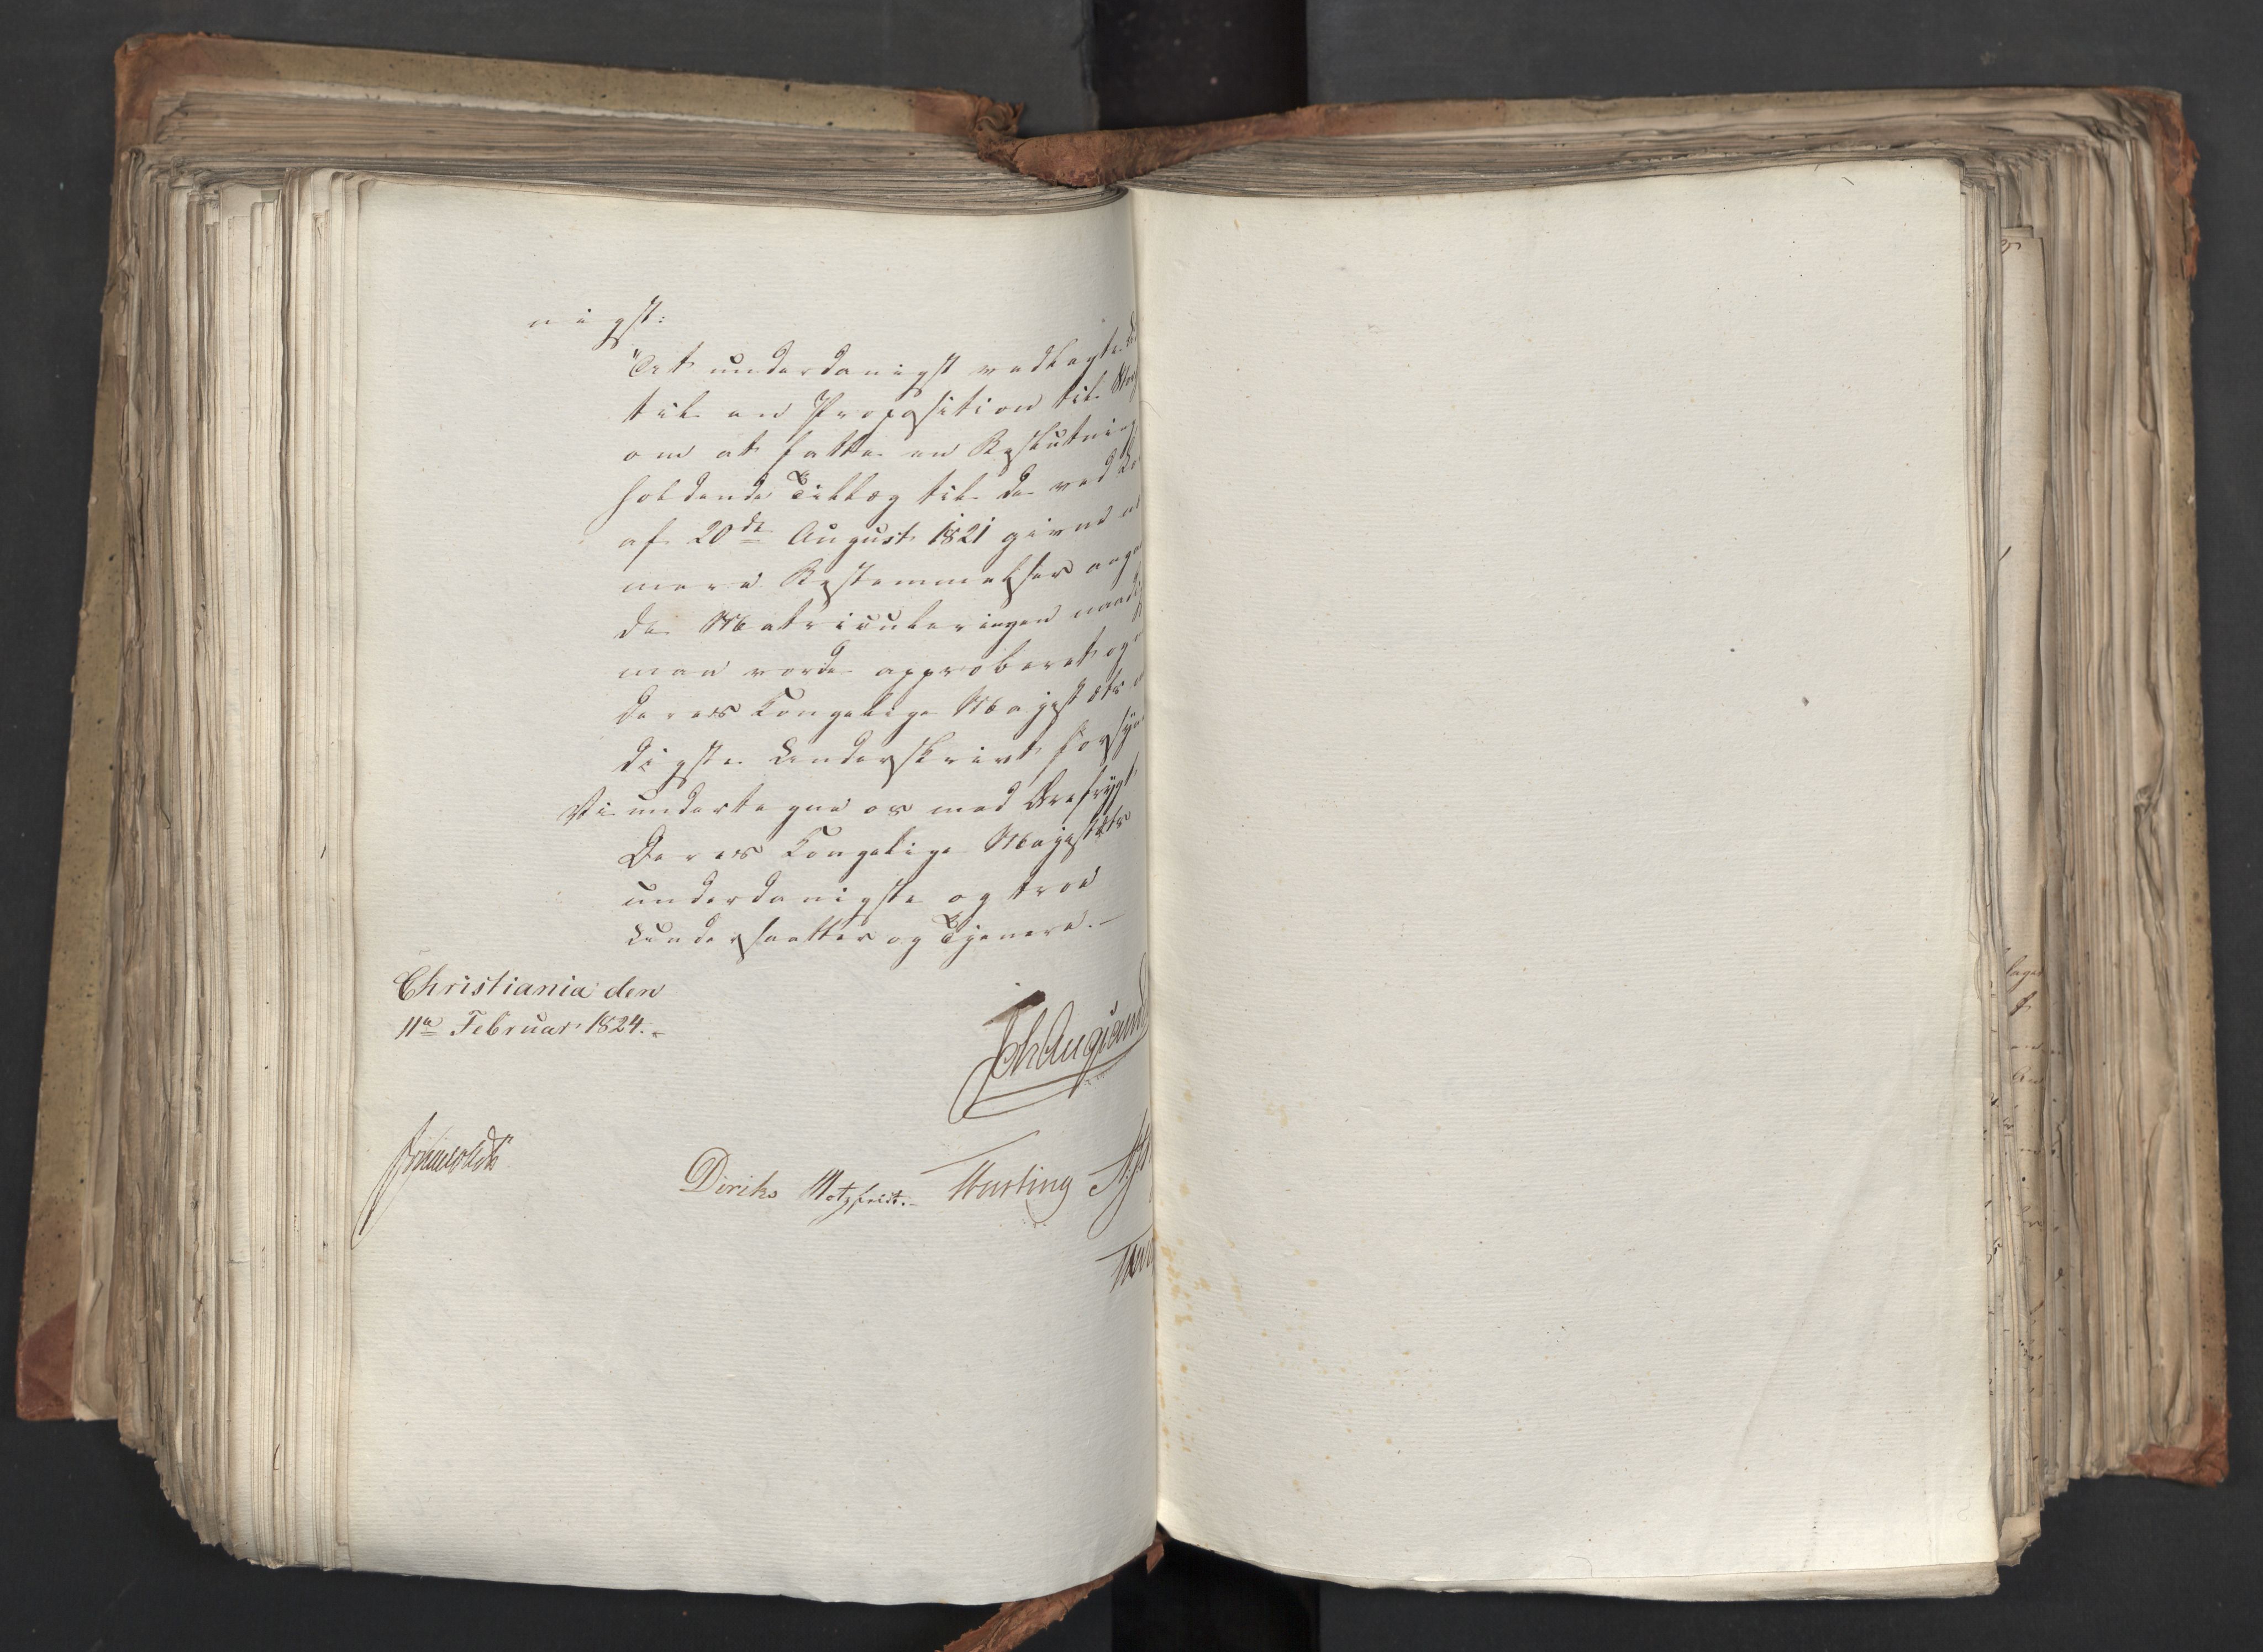 nigst:
"Det underdanigst vedlagte
til en Proposition til
om at fatte en Beslutning
holdende Tillæg til de ved
af 20de August 1821 givne
mere Bestemmelser
de Matriculeringen naadigst
maa vorde approberet og
deres Kongelige Majestæts
digste Underskrivt
Vi undertegne os med Ærefrygt
Deres Kongelige Majestæts
underdanigste og troe
Undersaatter og Tjenere.—
Christiania den
11te Februar 1824.—
Diriks Motzfeldt.—